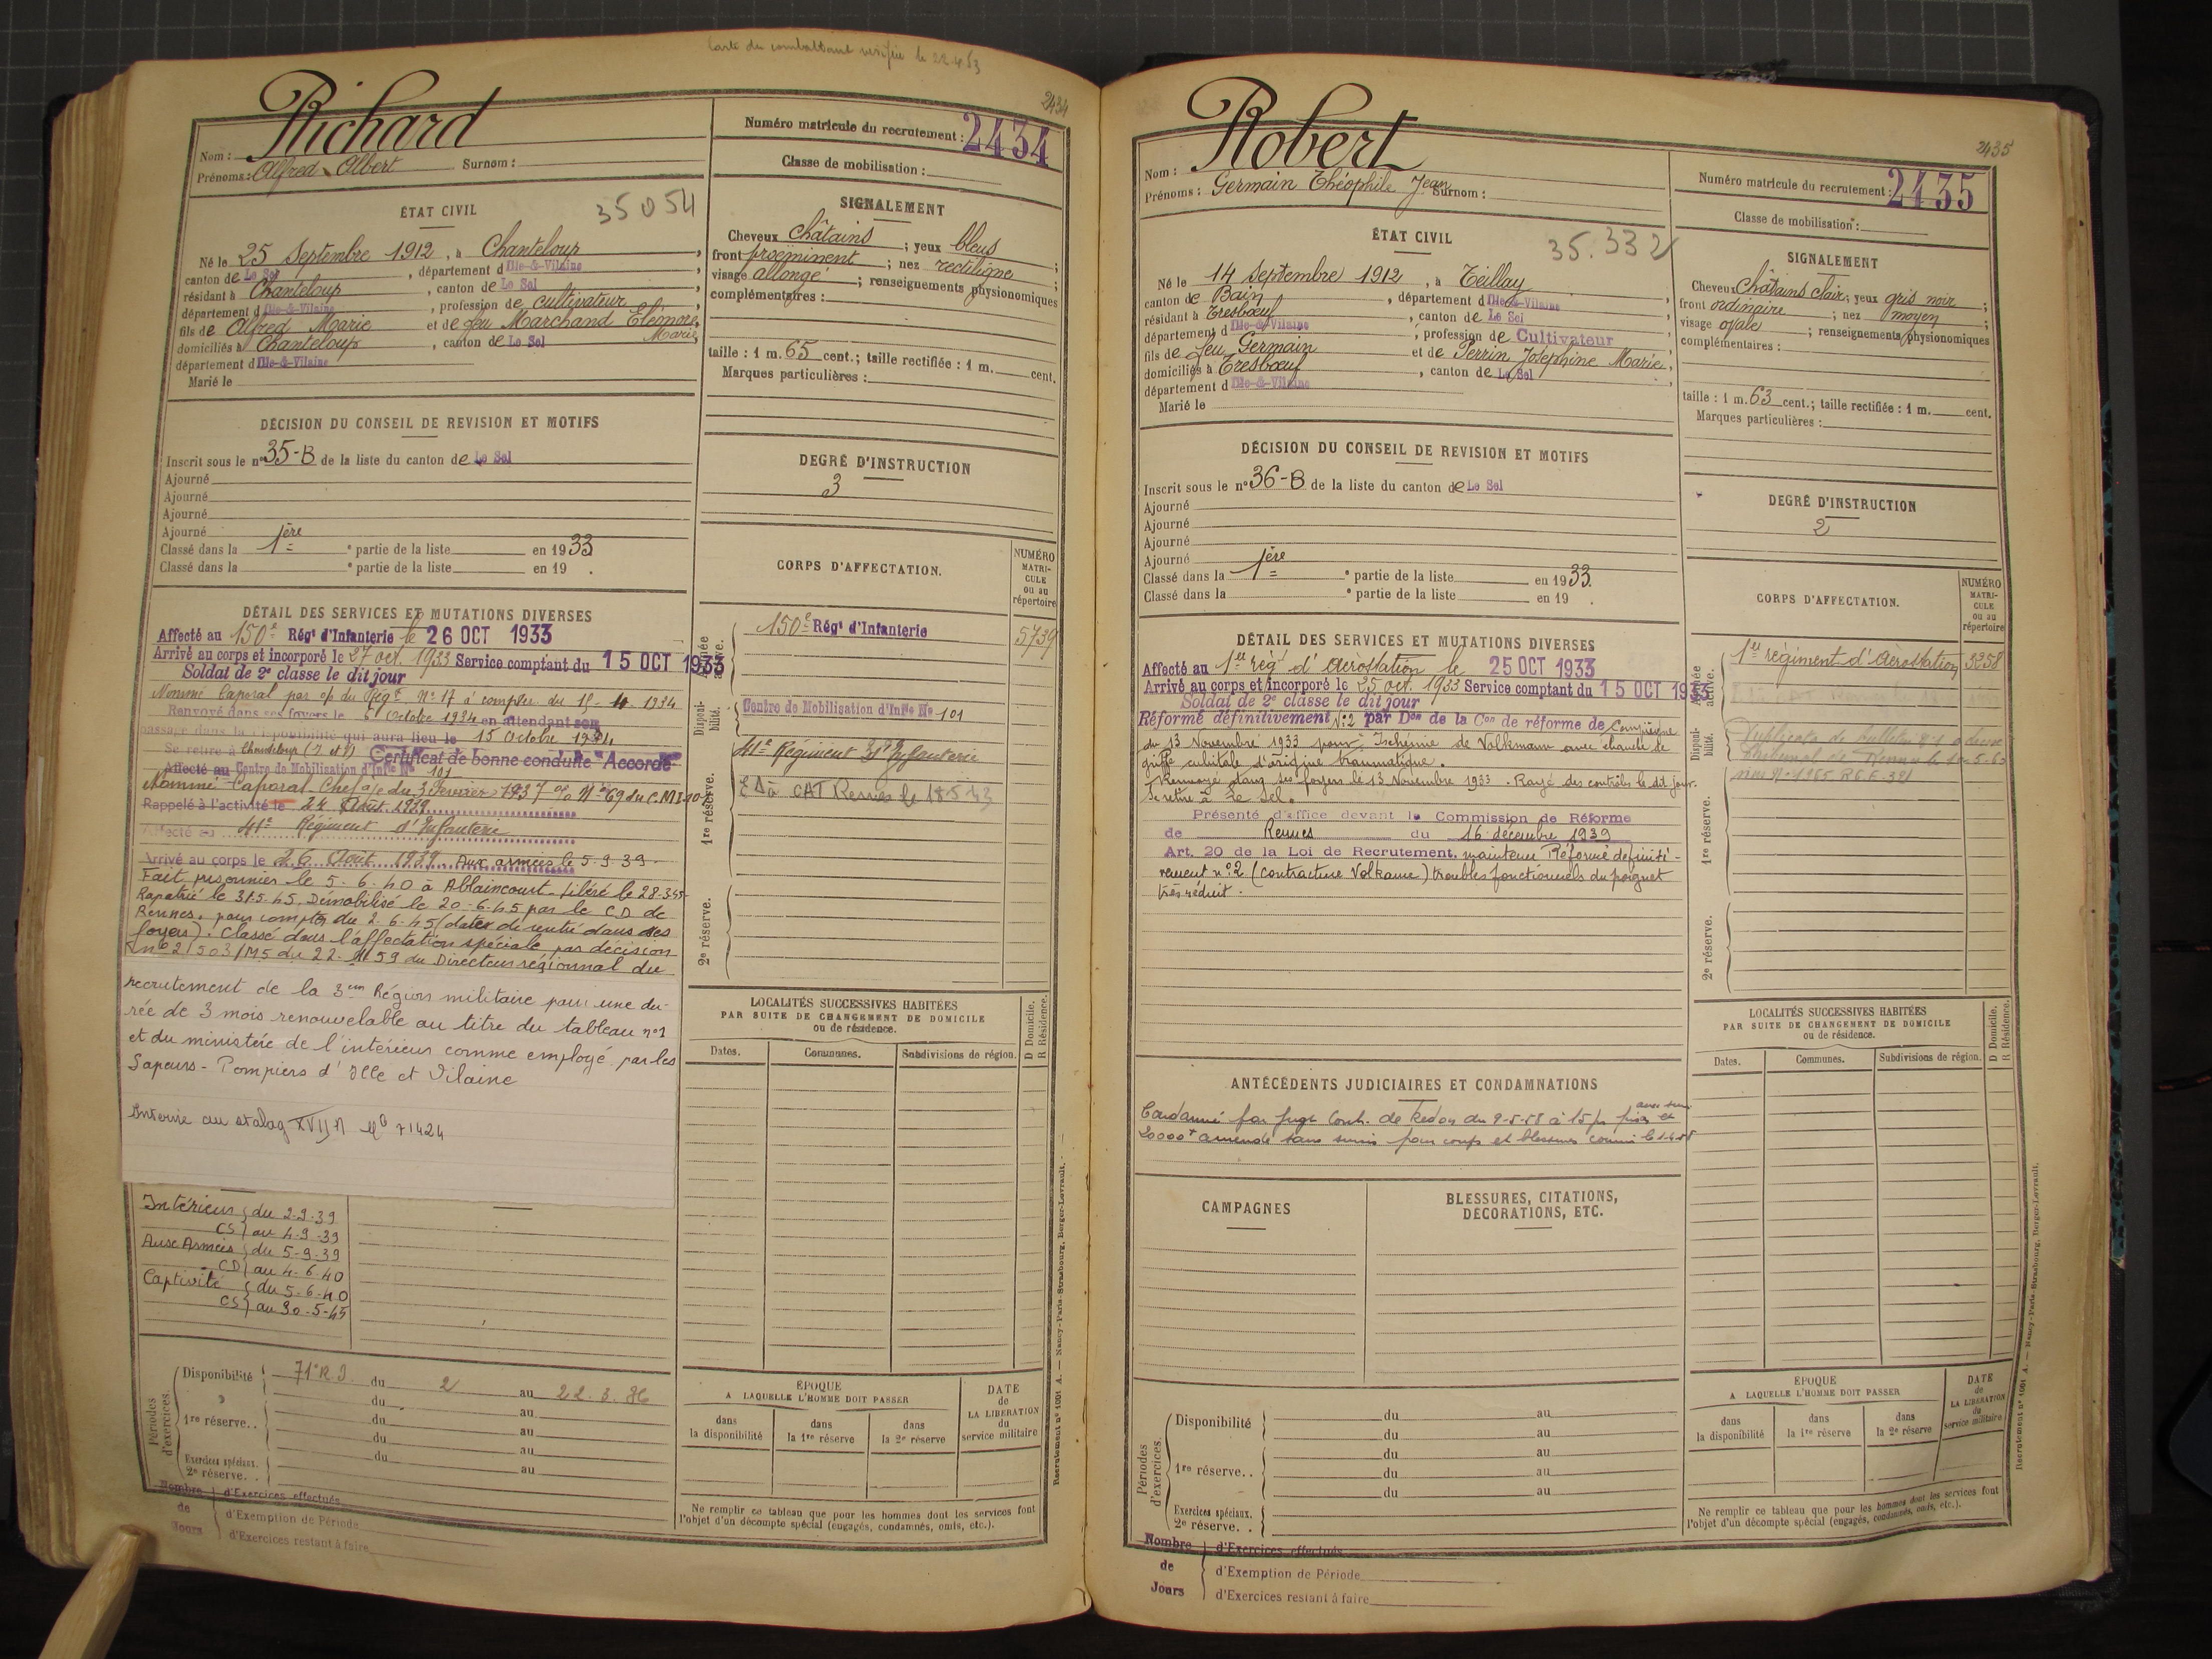 Carte du combattant vérifiée le 22.4.53
2434
Nom : Richard
Prénoms : Alfred Albert Surnom :
Numéro matricule du recrutement : 2434
Classe de mobilisation :
ÉTAT CIVIL
35054
Né le 25 Septembre 1912, à Chanteloup,
canton de Le Sel, département d Ille-&-Vilaine,
résidant à Chanteloup, canton de Le Sel,
département d Ille-&-Vilaine, profession de cultivateur,
fils de Alfred Marie et de feu Marchand Eléonore Marie,
domiciliés à Chanteloup, canton de Le Sel
département d Ille-&-Vilaine
Marié le
SIGNALEMENT
Cheveux châtains ; yeux bleus ;
front proéminent ; nez rectiligne ;
visage allongé ; renseignements physionomiques
complémentaires :
taille : 1 m. 65 cent.; taille rectifiée : 1 m. cent.
Marques particulières :
DÉCISION DU CONSEIL DE REVISION ET MOTIFS
Inscrit sous le n° 35-B de la liste du canton de Le Sel
Ajourné
Ajourné
Ajourné
Ajourné
Classé dans la 1ère e partie de la liste en 1933
Classé dans la e partie de la liste en 19 .
DEGRÉ D'INSTRUCTION
3
CORPS D'AFFECTATION.
NUMÉRO MATRICULE ou au répertoire
DÉTAIL DES SERVICES ET MUTATIONS DIVERSES
Affecté au 150e Régt d'Infanterie le 26 OCT 1933
Arrivé au corps et incorporé le 27 oct. 1933 Service comptant du 15 OCT 1933
Soldat de 2e classe le dit jour
Nommé Caporal par o/p du Régt N° 17 à compter du 15-4-1934
Renvoyé dans ses foyers le 6 Octobre 1934 en attendant son
passage dans la disponibilité qui aura lieu le 15 Octobre 1934
Se retire à Chanteloup (I et V) Certificat de bonne conduite "Accordé"
Affecté au Centre de Mobilisation d'Infie N° 101
Nommé Caporal Chef du 3 Février 1937 N° 69 du C.M.I. 101
Rappelé à l'activité le 24 Août 1939
Affecté au 41e Régiment d'Infanterie
Arrivé au corps le 26 Août 1939. Aux armées le 5-9-39.
Fait prisonnier le 5.6.40 à Ablaincourt. Libéré le 28.3.45
Rapatrié le 31.5.45. Démobilisé le 20-6-45 par le C.D. de
Rennes, pour compter du 2.6.45 (date de rentrée dans ses
foyers). Classé dans l'affectation spéciale par décision
n° 21503/M5 du 22.11.59 du Directeur régionnal du
recrutement de la 3em Région militaire pour une du-
rée de 3 mois renouvelable au titre du tableau n°1
et du ministère de l'intérieur comme employé par les
Sapeurs-Pompiers d'Ille et Vilaine
Interné au stalag XVII A N° 71424
Armée active.
150e Régt d'Infanterie 5739
Disponibilité.
Centre de Mobilisation d'Infie N° 101
41e Régiment d'Infanterie
1re réserve.
CAT Rennes le 18.5.43
2e réserve.
LOCALITÉS SUCCESSIVES HABITÉES
PAR SUITE DE CHANGEMENT DE DOMICILE
ou de résidence.
D Domicile.
R Résidence.
Dates. Communes. Subdivisions de région.
Intérieur du 2-9-39
CS au 4-9-39
Aux Armées du 5-9-39
CD au 4-6-40
Captivité du 5-6-40
CS au 30-5-45
Périodes d'exercices.
Disponibilité 71e R.I. du 2 au 22.3.36
du au
1re réserve.. du au
du au
Exercices spéciaux. du au
2e réserve. .
Nombre de Jours
d'Exercices effectués
d'Exemption de Période
d'Exercices restant à faire
ÉPOQUE
A LAQUELLE L'HOMME DOIT PASSER
dans la disponibilité
dans la 1re réserve
dans la 2e réserve
DATE de LA LIBÉRATION du service militaire
Ne remplir ce tableau que pour les hommes dont les services font
l'objet d'un décompte spécial (engagés, condamnés, omis, etc.).
Recrutement n° 1001 A. — Nancy-Paris-Strasbourg, Berger-Levrault.
2435
Nom : Robert
Prénoms : Germain Théophile Jean Surnom :
Numéro matricule du recrutement : 2435
Classe de mobilisation :
ÉTAT CIVIL
35.332
Né le 14 Septembre 1912, à Teillay,
canton de Bain, département d Ille-&-Vilaine
résidant à Tresbœuf, canton de Le Sel,
département d Ille-&-Vilaine, profession de Cultivateur,
fils de feu Germain et de Perrin Joséphine Marie,
domiciliés à Tresbœuf, canton de Le Sel,
département d Ille-&-Vilaine
Marié le
SIGNALEMENT
Cheveux Châtains clair; yeux gris noir ;
front ordinaire ; nez moyen ;
visage ovale ; renseignements physionomiques
complémentaires :
taille : 1 m. 63 cent.; taille rectifiée : 1 m. cent.
Marques particulières :
DÉCISION DU CONSEIL DE REVISION ET MOTIFS
Inscrit sous le n° 36-B de la liste du canton de Le Sel
Ajourné
Ajourné
Ajourné
Ajourné
Classé dans la 1ère e partie de la liste en 1933.
Classé dans la e partie de la liste en 19 .
DEGRÉ D'INSTRUCTION
2
CORPS D'AFFECTATION.
NUMÉRO MATRICULE ou au répertoire
DÉTAIL DES SERVICES ET MUTATIONS DIVERSES
Affecté au 1er régt d'Aérostation le 25 OCT 1933
Arrivé au corps et incorporé le 25 oct. 1933 Service comptant du 15 OCT 1933
Soldat de 2e classe le dit jour
Réformé définitivement N°2 par Don de la Con de réforme de Compiègne
du 13 Novembre 1933 pour: Ischémie de Volkmann avec ébauche de
griffe cubitale d'origine traumatique.
Renvoyé dans ses foyers le 13 Novembre 1933. Rayé des contrôles le dit jour.
Se retire à Le Sel.
Présenté d'office devant la Commission de Réforme
de Rennes du 16 décembre 1939
Art. 20 de la Loi de Recrutement. maintenu Réformé définiti-
vement n°2 (contracture Volkaume) troubles fonctionnels du poignet
très réduit.
Armée active.
1er régiment d'Aérostation 3258
Disponibilité.
Duplicata de bulletin n°1
tribunal de Rennes
1re réserve.
2e réserve.
LOCALITÉS SUCCESSIVES HABITÉES
PAR SUITE DE CHANGEMENT DE DOMICILE
ou de résidence.
D Domicile.
R Résidence.
Dates. Communes. Subdivisions de région.
ANTÉCÉDENTS JUDICIAIRES ET CONDAMNATIONS
Condamné par Juge de Redon du 9-5-58 à 15 jrs prison avec sursis et
20000 F amende sans sursis pour coups et blessures commis le
CAMPAGNES
BLESSURES, CITATIONS,
DÉCORATIONS, ETC.
Périodes d'exercices.
Disponibilité du au
du au
1re réserve.. du au
du au
du au
Exercices spéciaux.
2e réserve. .
Nombre de Jours
d'Exercices effectués
d'Exemption de Période
d'Exercices restant à faire
ÉPOQUE
A LAQUELLE L'HOMME DOIT PASSER
dans la disponibilité
dans la 1re réserve
dans la 2e réserve
DATE de LA LIBÉRATION du service militaire
Ne remplir ce tableau que pour les hommes dont les services font
l'objet d'un décompte spécial (engagés, condamnés, omis, etc.).
Recrutement n° 1001 A. — Nancy-Paris-Strasbourg, Berger-Levrault.